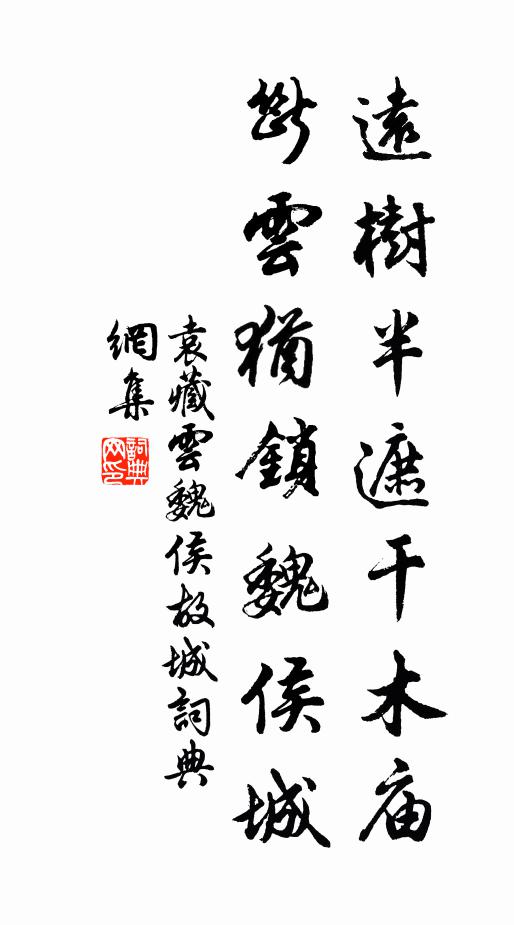 遠樹半遮干木庙
斷雲猶鎖魏侯城
袁藏雲魏侯故城詞典
網集
詞典
网印